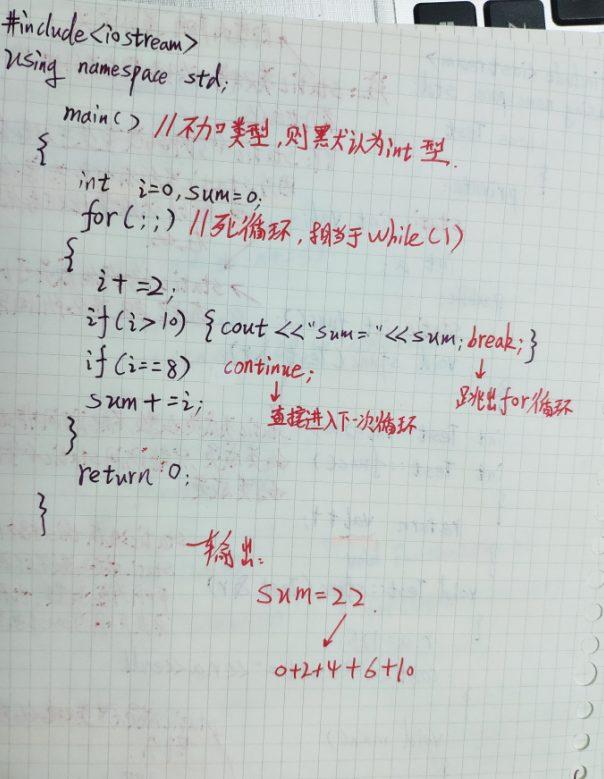 #include<iostream>
using namespace std;
main() //不加类型,则默认为int 型.
{
int i=0, sum=0;
for(;;) //死循环,相当于while(1)
{
i+=2;
if(i>10) {cout <<"sum="<<sum; break;}
if(i==8) continue;
跳出for循环
sum+=i;
直接进入下一次循环
}
return 0;
}
输出:
sum=22.
0+2+4+6+10